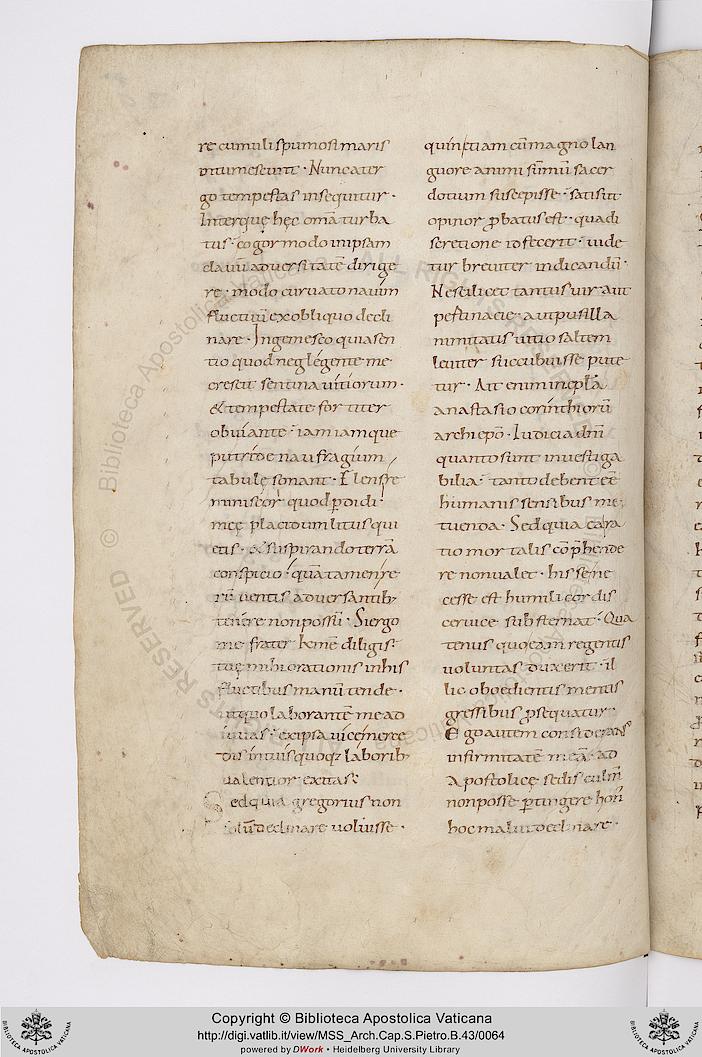 re cumuli spumosi maris
intumescunt · Nunc a ter
go tempestas insequitur ·
Interquę hęc om̄a turba
tus · cogor modo in ipsam
clavū adversitatē dirige
re · modo curvato navim
fluctuū ex obliquo decli
nare · Ingemesco quia sen
tio quod neglegente me
crescit sentina vitiorum ·
& tempestate fortiter
obviante · iam iamque
putride naufragium
tabulę sonant · Flens re
miniscor quod ꝑdidi ·
męę placidum litus qui
etis · & suspirando terrā
conspicio · quā tamen re
rū ventis adversantib;
tenere non possū · Si ergo
me frater bene diligis ·
tuę mihi orationis in his
fluctibus manū tende ·
ut quo laborantē me ad
iuvas · ex ipsa vice merce
dis in tuis quoq; laborib;
valentior exstas ·
Sed quia gregorius non
solū declinare voluisse ·
quin etiam cū magno lan
guore animi sūmū sacer
dotium suscepisse · satis ut
opinor ꝓbatus est · qua di
scretione id fecerit · vide
tur breviter indicandū ·
Ne scilicet tantus vir aut
pertinacie · aut pusilla
nimitatis vitio saltem
leviter succubuisse pute
tur · Ait enim in ep̄la
anastasio corinthiorū
archiepō · Iudicia dn̄i
quanto sunt investiga
bilia · tanto debent eē
humanis sensibus me
tuenda · Sed quia ea ra
tio mortalis cōp̄hende
re non valet · his se ne
cesse est humili cordis
cervice substernat · Qua
tenus quo eam regentis
voluntas duxerit · il
lic oboedientis mentis
gressibus ꝓsequatur ·
Ego autem considerans
infirmitatē meā · ad
Apostolicę sedis culm̄
non posse ꝑtingere hon̄
hoc malui declinare ·
Copyright © Biblioteca Apostolica Vaticana
http://digi.vatlib.it/view/MSS_Arch.Cap.S.Pietro.B.43/0064
powered by DWork • Heidelberg University Library